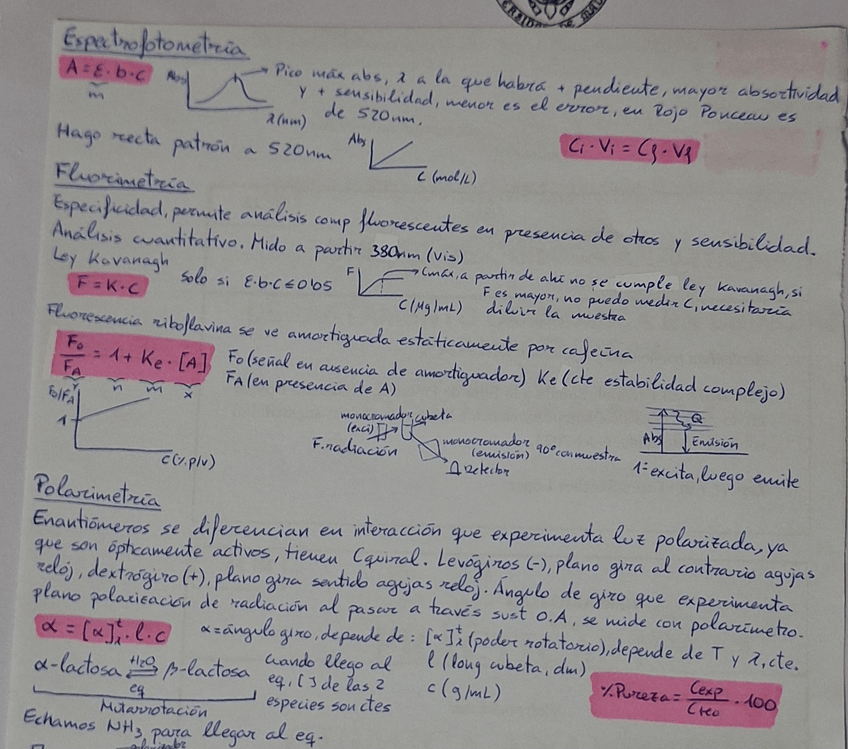 Espectrofotometría
A = ε · b · c
m
Abs
λ(nm)
Pico máx abs, λ a la que habrá + pendiente, mayor absortividad
y + sensibilidad, menor es el error, en Rojo Ponceau es
de 520nm.
Hago recta patrón a 520nm
Abs
C (mol/L)
Ci · Vi = Cf · Vf
Fluorimetría
Especificidad, permite análisis comp fluorescentes en presencia de otros y sensibilidad.
Análisis cuantitativo. Mido a partir 380nm (vis)
Ley Kavanagh
F = K · C
solo si ε·b·c ≤ 0'05
F
C (µg/mL)
Cmáx, a partir de ahí no se cumple ley Kavanagh, si
F es mayor, no puedo medir C, necesitaría
diluir la muestra
Fluorescencia riboflavina se ve amortiguada estáticamente por cafeína
F0/FA = 1 + Ke · [A]
y n m x
F0 (señal en ausencia de amortiguador) Ke (cte estabilidad complejo)
FA (en presencia de A)
F0/FA
1
C (% p/v)
monocromador cubeta
(exci)
F. radiación
monocromador
(emisión)
90° con muestra
Detector
Q
Abs
Emisión
1º excita, luego emite
Polarimetría
Enantiómeros se diferencian en interacción que experimenta luz polarizada, ya
que son ópticamente activos, tienen Cquiral. Levógiros (-), plano gira al contrario agujas
reloj, dextrógiro (+), plano gira sentido agujas reloj. Ángulo de giro que experimenta
plano polarización de radiación al pasar a través sust O.A, se mide con polarímetro.
α = [α]tλ · l · c
α = ángulo giro, depende de: [α]tλ (poder rotatorio), depende de T y λ, cte.
l (long cubeta, dm)
c (g/mL)
α-lactosa ⇌ β-lactosa
H2O
eq
Mutarrotación
cuando llego al
eq, [ ] de las 2
especies son ctes
% Pureza = Cexp/Cteo · 100
Echamos NH3 para llegar al eq.